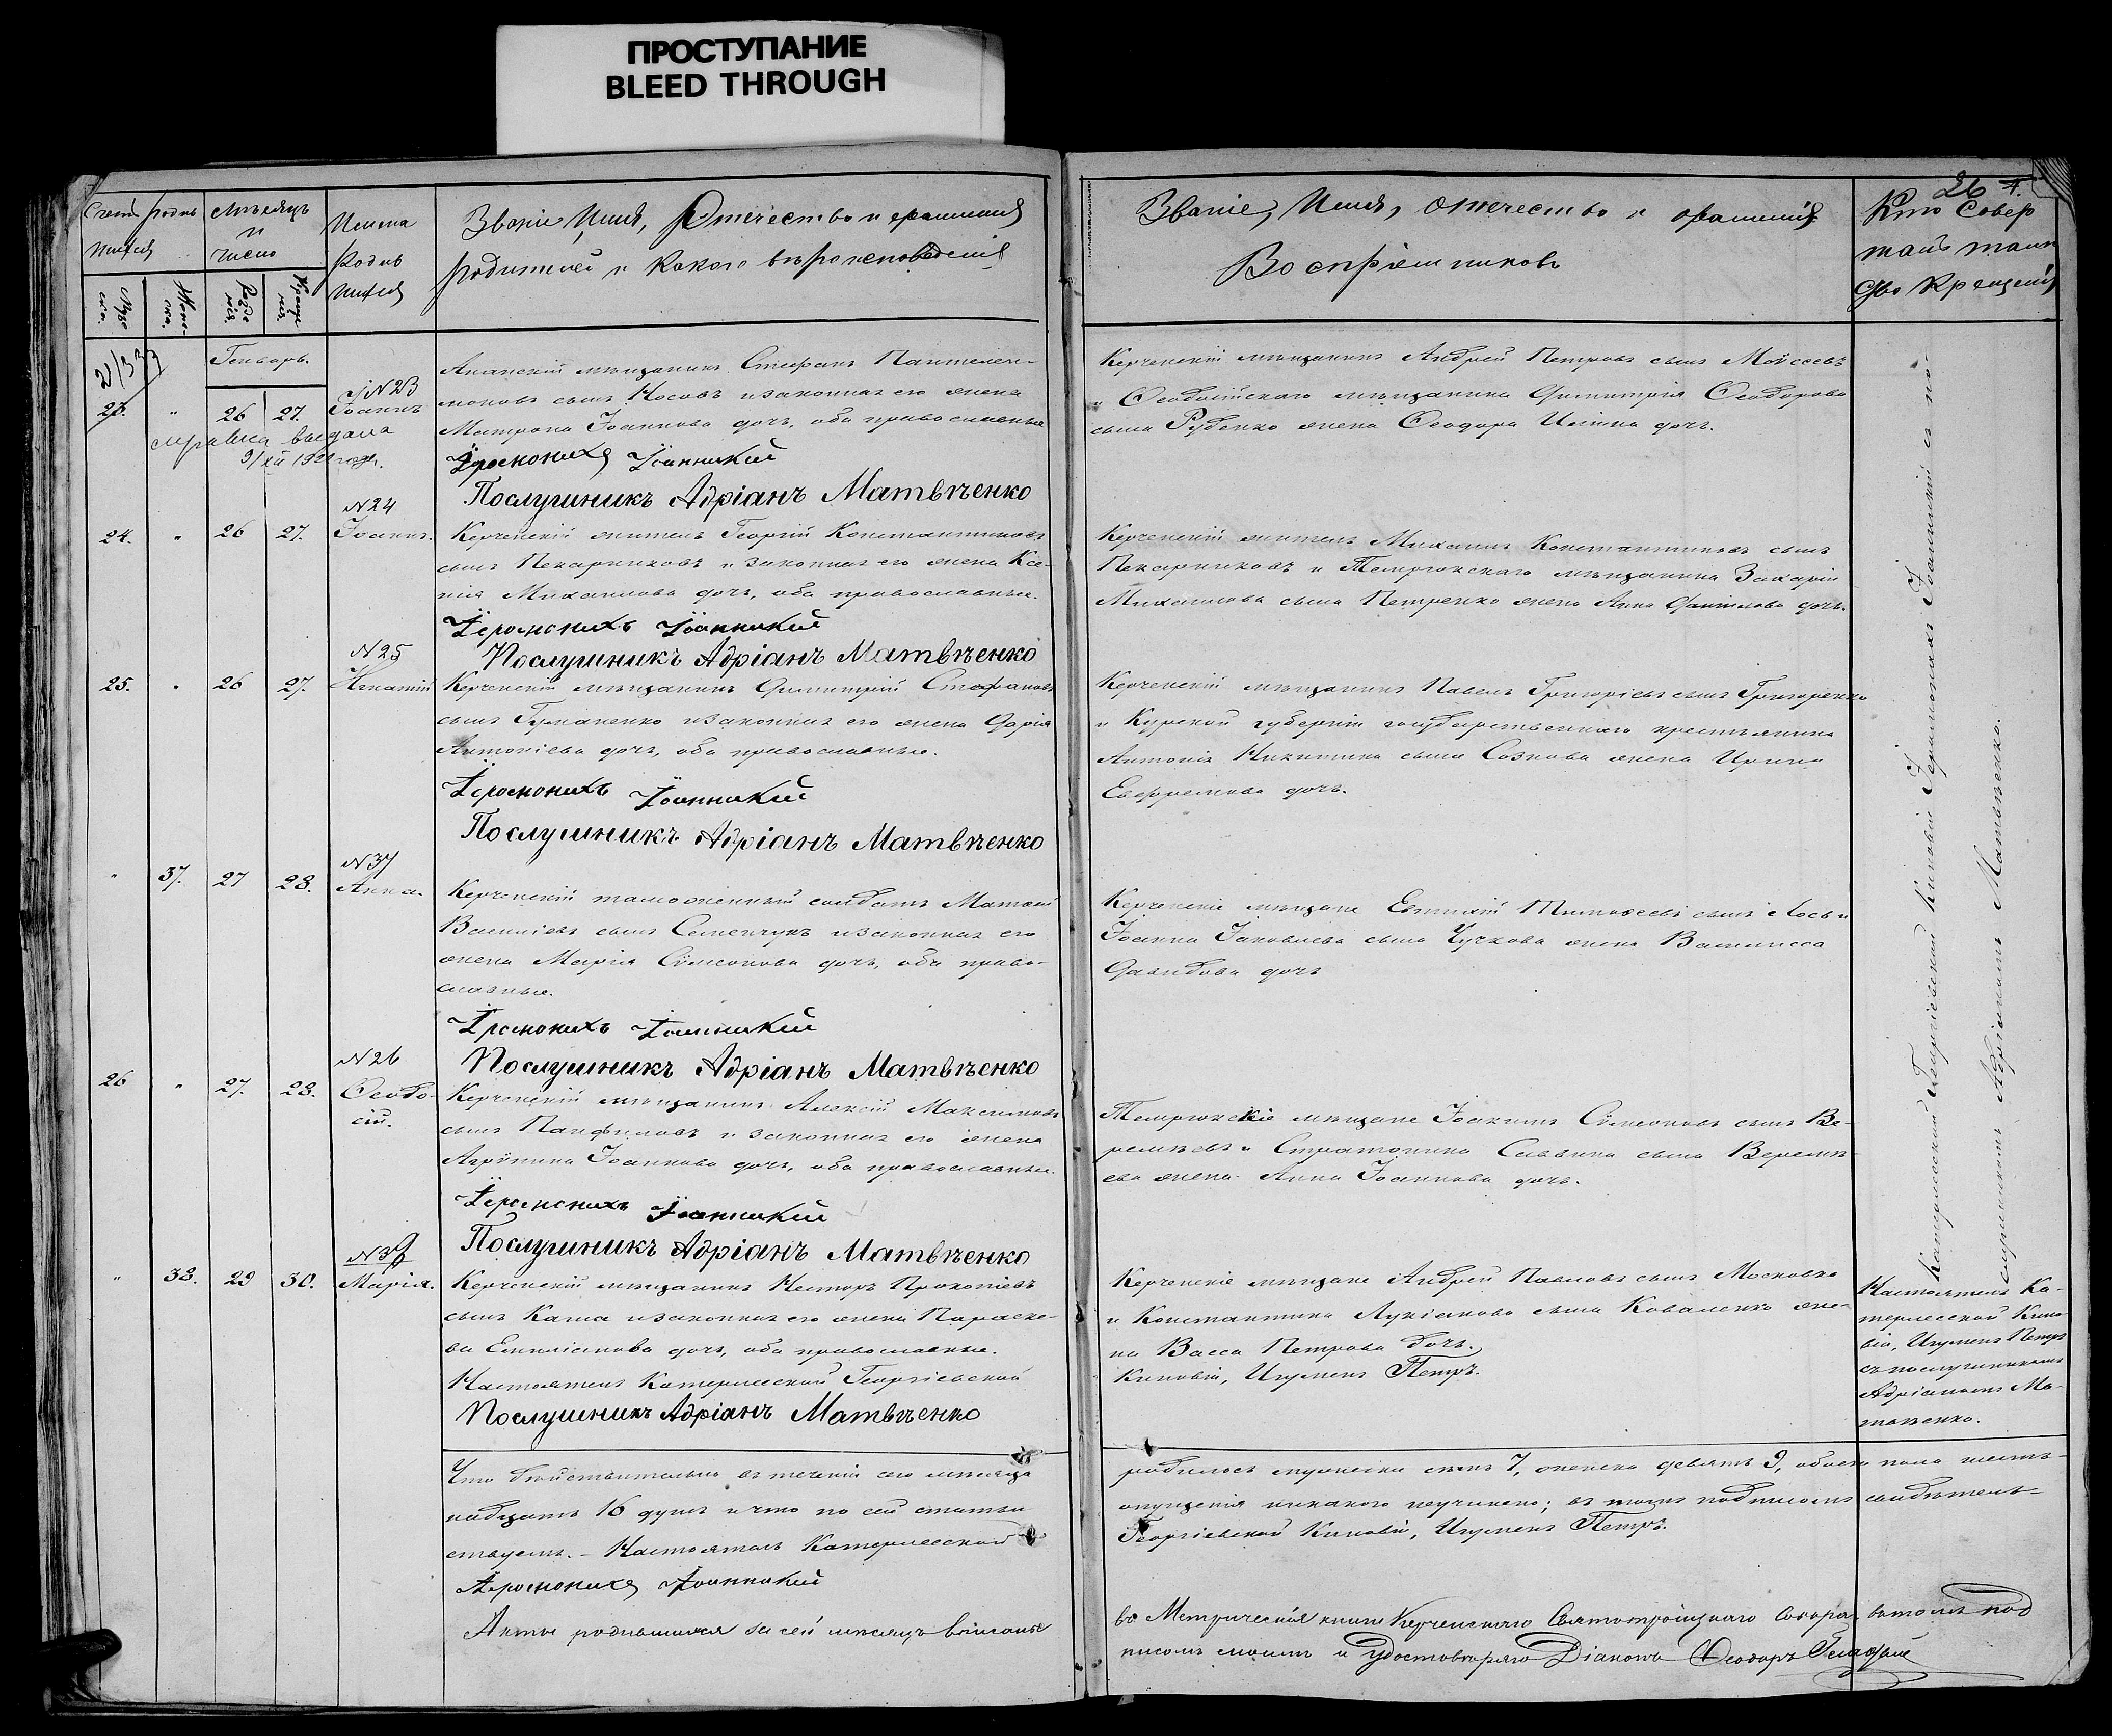 ПРОСТУПАНИЕ
BLEED THROUGH
26
Счетъ родив
шихся
Муже
ска.
Женс-
ка.
Мѣсяцъ
и
число
Рожде
нія.
Креще
нія.
Имена
Родив
шихся
Званіе, Имя, Отечество и фамилія
родителей и какого вѣроисповѣданія
Званіе, Имя, отечество и фамилія
Воспріемниковъ
Кто Совер
шалъ таин
ство Крещенія
Генварь.
23. " 26 27.
№ 23
Іоаннъ
справка выдана
Анапскій мѣщанинъ Стефанъ Пантелеи-
моновъ сынъ Носовъ и законная его жена
Матрона Іоаннова дочь, оба православные
Іеромонахъ Іоанникій
Послушникъ Адріанъ Матвѣенко
Керченскій мѣщанинъ Андрей Петровъ сынъ Моѵсеевъ
и Ѳеодосійскаго мѣщанина Димитрія Ѳеодорова
сына Рубенко жена Ѳеодора Ильина дочь.
24. " 26 27.
№ 24
Іоаннъ.
Керченскій житель Георгій Константиновъ
сынъ Пекарниковъ и законная его жена Ксе-
нія Михаилова дочь, оба православные.
Іеромонахъ Іоанникій
Послушникъ Адріанъ Матвѣенко
Керченскій житель Михаилъ Константиновъ сынъ
Пекарниковъ и Темрюкскаго мѣщанина Захарія
Михаилова сына Петренко жена Анна Даніилова дочь.
25. " 26 27.
№ 25
Игнатій
Керченскій мѣщанинъ Димитрій Стефановъ
сынъ Гуманенко и законная его жена Дарія
Антоніева дочь, оба православные.
Іеромонахъ Іоанникій
Послушникъ Адріанъ Матвѣенко
Керченскій мѣщанинъ Павелъ Григоріевъ сынъ Григоренко
и Курской губерніи государственнаго крестьянина
Антонія Никитина сына Сознова жена Ирина
Евфремова дочь.
" 37. 27 28.
№ 37
Анна.
Керченскій таможенный солдатъ Матѳей
Василіевъ сынъ Семенчукъ и законная его
жена Марія Сѵмеонова дочь, оба право-
славные.
Іеромонахъ Іоанникій
Послушникъ Адріанъ Матвѣенко
Керченскіе мѣщане Евтихій Тимоѳеевъ сынъ Лось и
Іоанна Іаковлева сына Чучкова жена Василисса
Давидова дочь
26 " 27. 28.
№ 26
Ѳеодо-
сій.
Керченскій мѣщанинъ Алексій Максимовъ
сынъ Панфиловъ и законная его жена
Агрѵпина Іоаннова дочь, оба православные.
Іеромонахъ Іоанникій
Послушникъ Адріанъ Матвѣенко
Темрюкскіе мѣщане Іоакимъ Сѵмеоновъ сынъ Ве-
ремѣевъ и Стратоника Саввина сына Веремѣ-
ева жена Анна Іоаннова дочь.
" 38. 29 30.
№ 38
Марія.
Керченскій мѣщанинъ Несторъ Прокопіевъ
сынъ Каша и законная его жена Параске-
ва Емиліанова дочь, оба православные.
Настоятель Катерлесской Георгіевской
Послушникъ Адріанъ Матвѣенко
Керченскіе мѣщане Андрей Павловъ сынъ Московка
и Константина Лукіанова сына Коваленко же-
на Васса Петрова дочь.
Киновіи, Игуменъ Петръ.
Катерлесской Георгіевской Киновіи Іеромонахъ Іоанникій съ по-
слушникомъ Адріаномъ Матвѣенко.
Настоятель Ка-
терлесской Кино
віи, Игуменъ Петръ
съ послушникомъ
Адріаномъ Ма-
твѣенко.
Что дѣйствительно въ теченіи сего мѣсяца
родилось мужеска семь 7, женска девять 9, обоего пола шест-
надцать 16 душъ и что по сей статьи
опущенія никакого неучинено; въ томъ подписомъ свидѣтель-
ствуемъ. – Настоятель Катерлесской
Георгіевской Киновіи, Игуменъ Петръ.
Іеромонахъ Іоанникій
Акты родившихся за сей мѣсяцъ вписаны
въ Метрическія книги Керченскаго Святотроицкаго Собора. въ томъ под
писомъ моимъ и удостовѣряю Діаконъ Ѳеодоръ